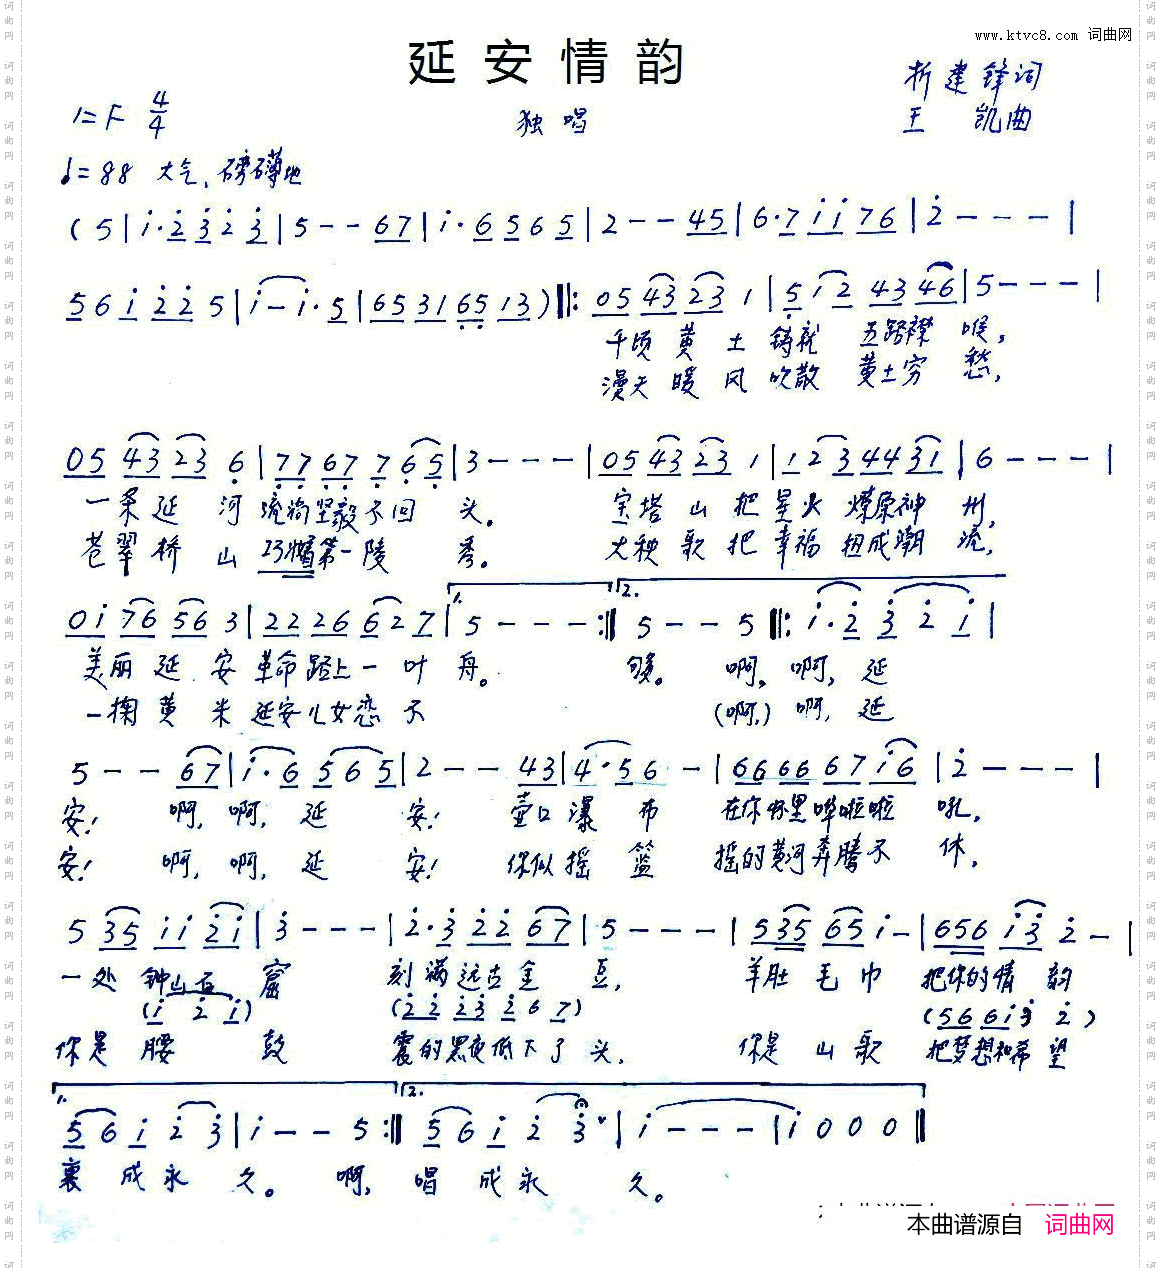 www.ktvc8.com 词曲网
延安情韵
独唱
析建锋词
王 凯曲
1=F 4/4
♩=88 大气、磅礴地
(5|i·2 3 2 3|5--67|i·6 5 6 5|2--45|6·7 i i 76|2---|
56i 22 5|i-i·5|6531 65 13)‖:05 43 23 1|5 i2 43 46|5---|
千顷黄土铸就五路襟喉，
漫天暖风吹散黄土穷愁，
05 43 23 6|77 67 7 6 5|3---|05 43 23 1|1 23 44 31|6---|
一条延河流淌坚毅不回头。 宝塔山把星火燎原神州，
苍翠桥山巧嵋第一陵秀。 大秧歌把幸福扭成潮流，
0i 76 56 3|22 26 62 7|1. 5---:‖2. 5--5‖:i·2 3 2 i|
美丽延安革命路上一叶舟。 够。 啊，啊，延
一掬黄米延安儿女恋不 (啊，)啊，延
5--67|i·6 5 6 5|2--43|4·56-|66 66 67 i6|2---|
安！ 啊，啊，延安！ 壶口瀑布在你怀里哗啦啦吼，
安！ 啊，啊，延安！ 你似摇篮摇的黄河奔腾不休，
5 35 ii 2i|3---|2·3 22 67|5---|535 65 i-|656 i3 2-|
一处钟山石窟刻满远古金豆， 羊肚毛巾把你的情韵
(i 2 i) (22 23 2 6 7) (56 6i 3 2)
你是腰鼓震的黑夜低下了头， 你是山歌把梦想和希望
1. 56 i 2 3|i--5:‖2. 56 i 2 3|i---|i000‖
裹成永久。 啊，唱成永久。
本曲谱源自 词曲网